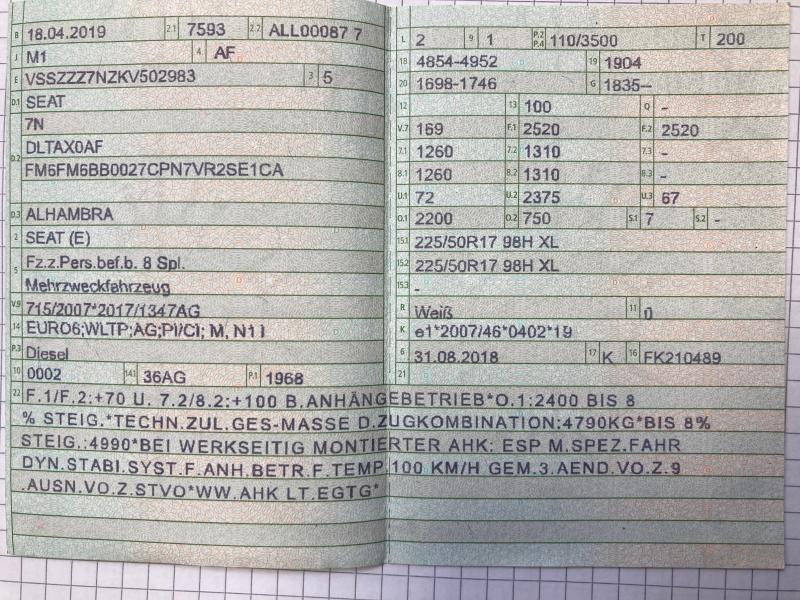 B 18.04.2019 2.1 7593 2.2 ALL00087 7
J M1 4 AF
E VSSZZZ7NZKV502983 3 5
D.1 SEAT
7N
D.2 DLTAX0AF
FM6FM6BB0027CPN7VR2SE1CA
D.3 ALHAMBRA
2 SEAT (E)
5 Fz.z.Pers.bef.b. 8 Spl.
Mehrzweckfahrzeug
V.9 715/2007*2017/1347AG
14 EURO6;WLTP;AG;PI/CI; M, N1 I
P.3 Diesel
10 0002 14.1 36AG P.1 1968
L 2 9 1 P.2 P.4 110/3500 T 200
18 4854-4952 19 1904
20 1698-1746 G 1835--
12 13 100 Q -
V.7 169 F.1 2520 F.2 2520
7.1 1260 7.2 1310 7.3 -
8.1 1260 8.2 1310 8.3 -
U.1 72 U.2 2375 U.3 67
O.1 2200 O.2 750 S.1 7 S.2 -
15.1 225/50R17 98H XL
15.2 225/50R17 98H XL
15.3 -
R Weiß 11 0
K e1*2007/46*0402*19
6 31.08.2018 17 K 16 FK210489
21
22 F.1/F.2:+70 U. 7.2/8.2:+100 B.ANHÄNGEBETRIEB*O.1:2400 BIS 8
% STEIG.*TECHN.ZUL.GES-MASSE D.ZUGKOMBINATION:4790KG*BIS 8%
STEIG.:4990*BEI WERKSEITIG MONTIERTER AHK: ESP M.SPEZ.FAHR
DYN.STABI.SYST.F.ANH.BETR.F.TEMP.100 KM/H GEM.3.AEND.VO.Z.9
.AUSN.VO.Z.STVO*WW.AHK LT.EGTG*